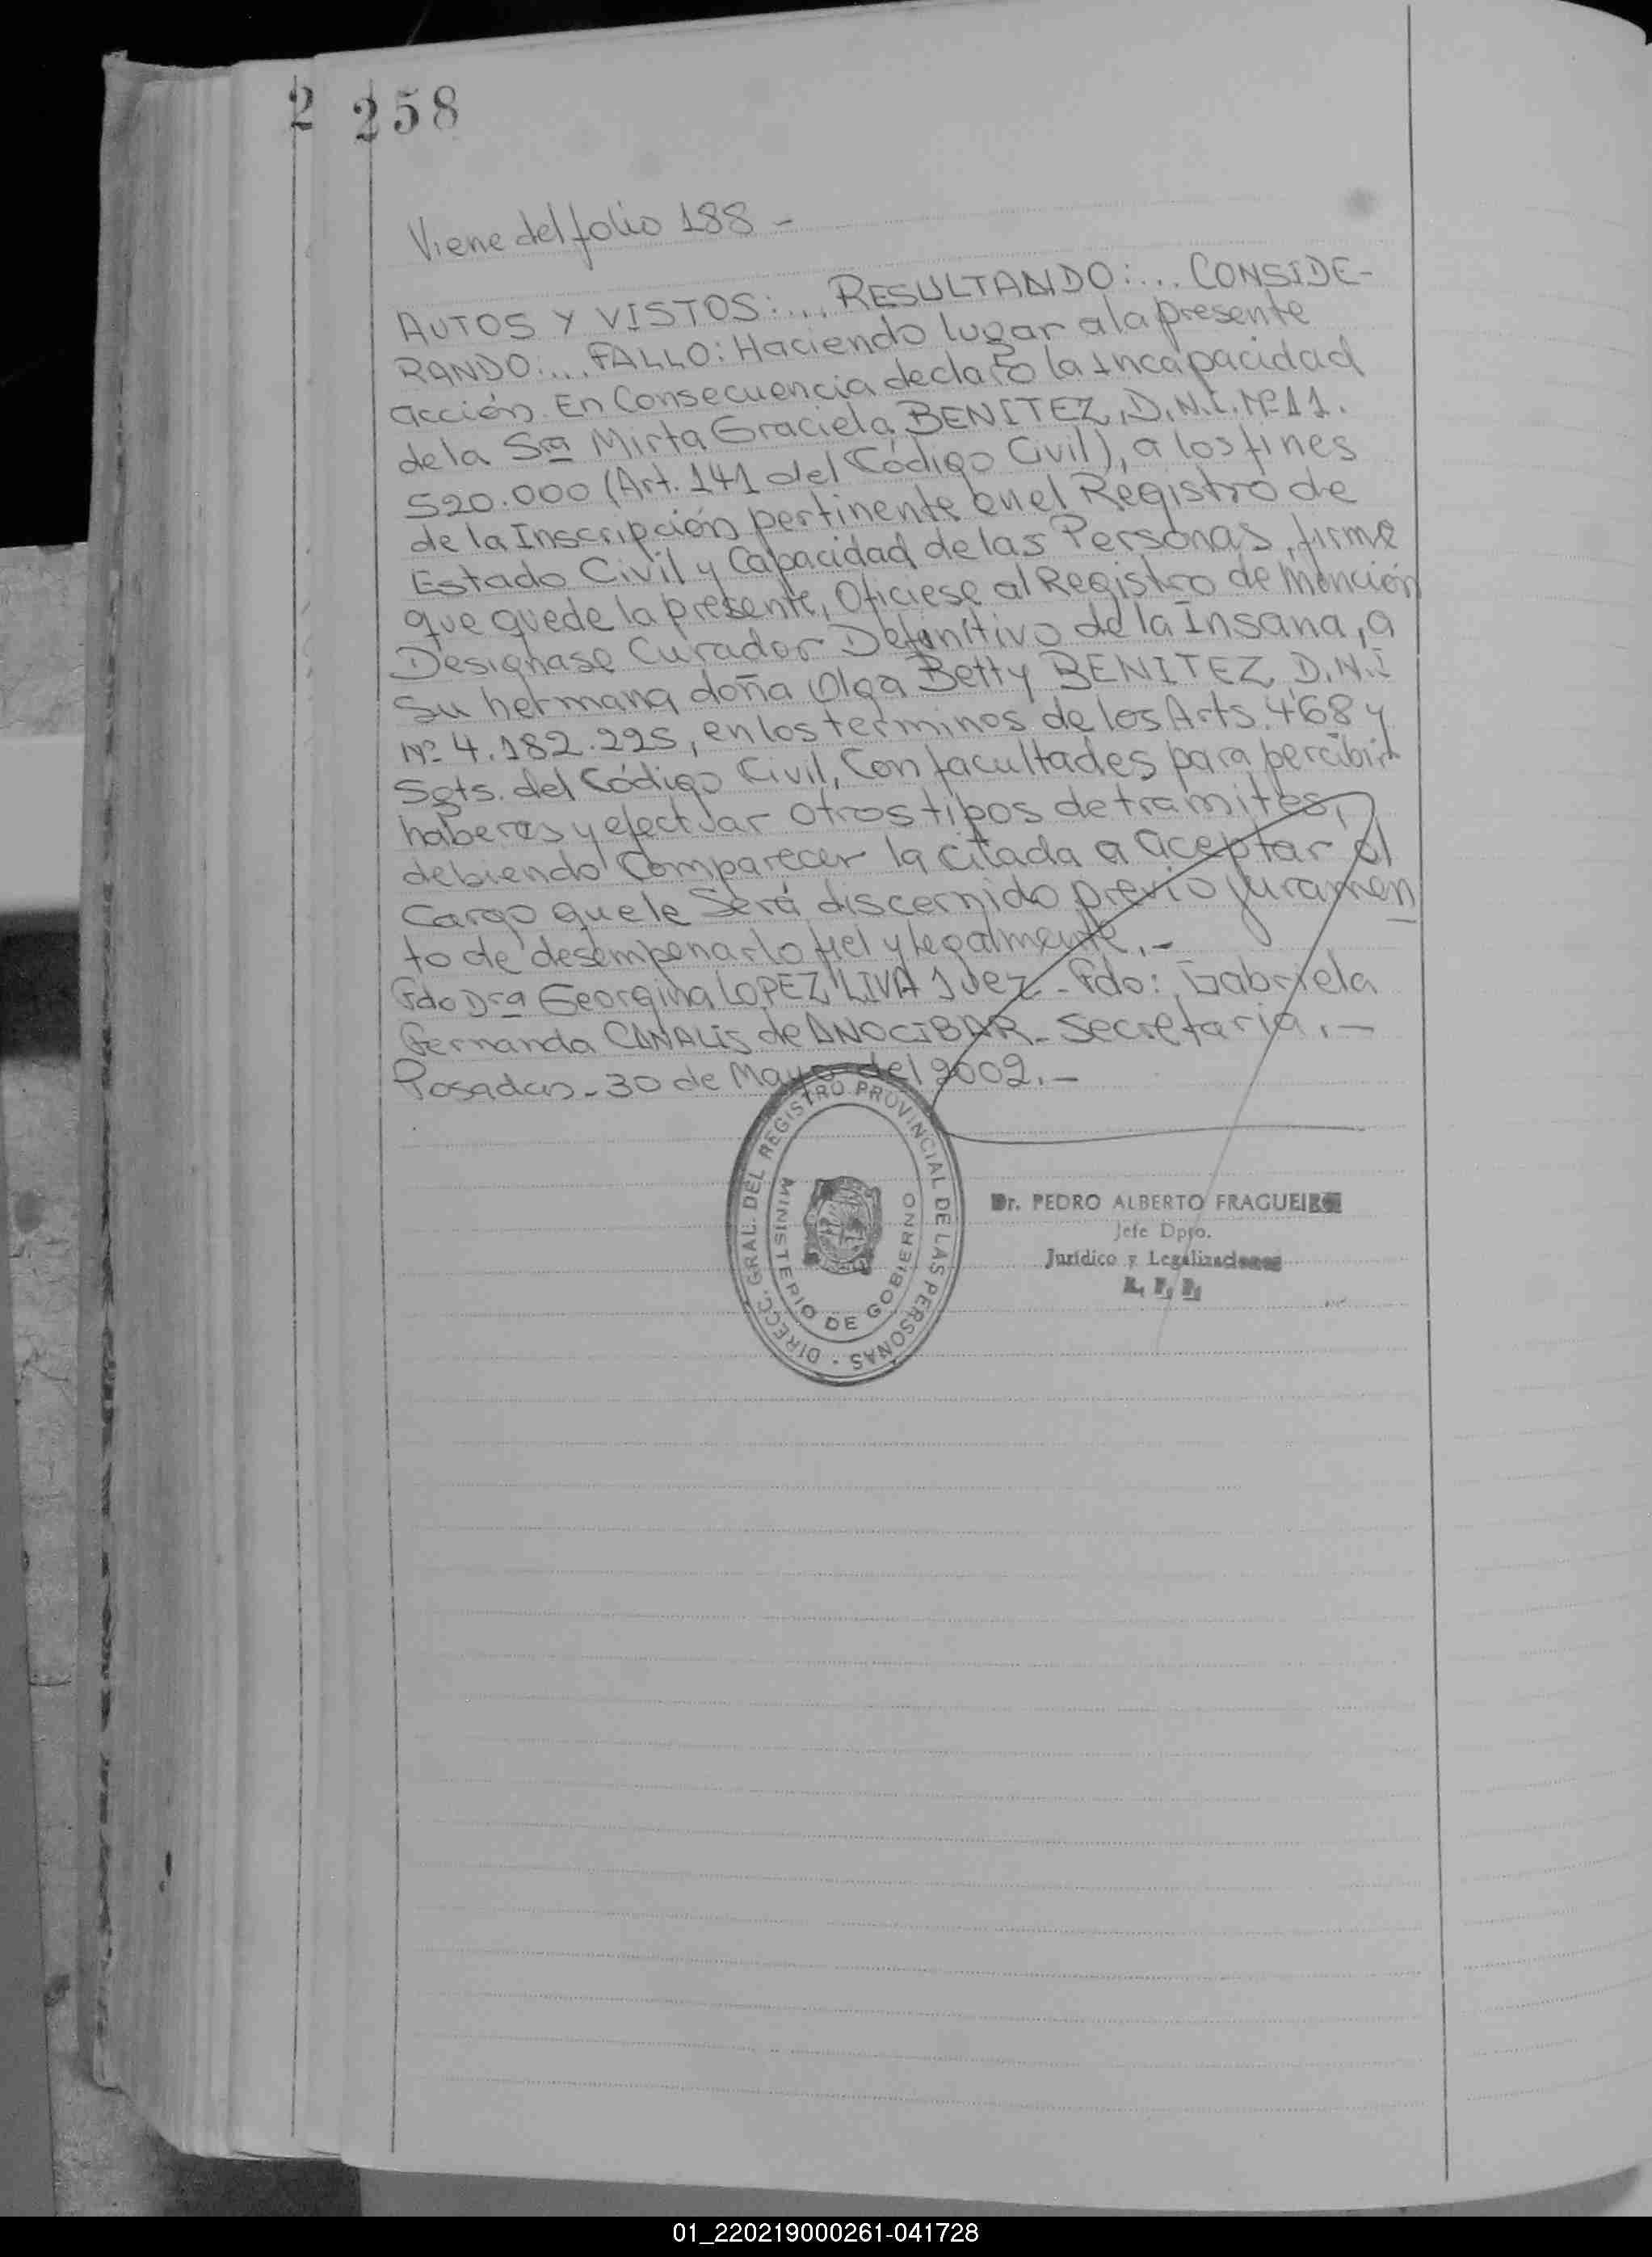 2 258
Viene del folio 188 -
AUTOS Y VISTOS:... RESULTANDO:... CONSIDE-
RANDO:... FALLO: Haciendo lugar a la presente
acción. En Consecuencia declaro la Incapacidad
de la Sra Mirta Graciela BENITEZ, D.N.I. Nº 11.
520.000 (Art. 141 del Código Civil), a los fines
de la Inscripción pertinente en el Registro de
Estado Civil y Capacidad de las Personas, firme
que quede la presente, Ofíciese al Registro de mención
Desígnase Curador Definitivo de la Insana, a
Su hermana doña Olga Betty BENITEZ D.N.I
Nº 4.182.225, en los terminos de los Arts. 468 y
Sgts. del Código Civil, Con facultades para percibir
haberes y efectuar otros tipos de tramites,
debiendo Comparecer la citada a aceptar el
Cargo que le Será discernido previo juramen
to de desempenarlo fiel y legalmente.-
Fdo Dra Georgina LOPEZ LIVA Juez - Fdo: Gabriela
Fernanda CANALIS de ANOCIBAR - Secretaria.-
Posadas - 30 de Mayo del 2002.-
DIRECC. GRAL. DEL REGISTRO PROVINCIAL DE LAS PERSONAS -
MINISTERIO DE GOBIERNO
Dr. PEDRO ALBERTO FRAGUEIRO
Jefe Dpto.
Jurídico y Legalizaciones
R. P. P.
01_220219000261-041728